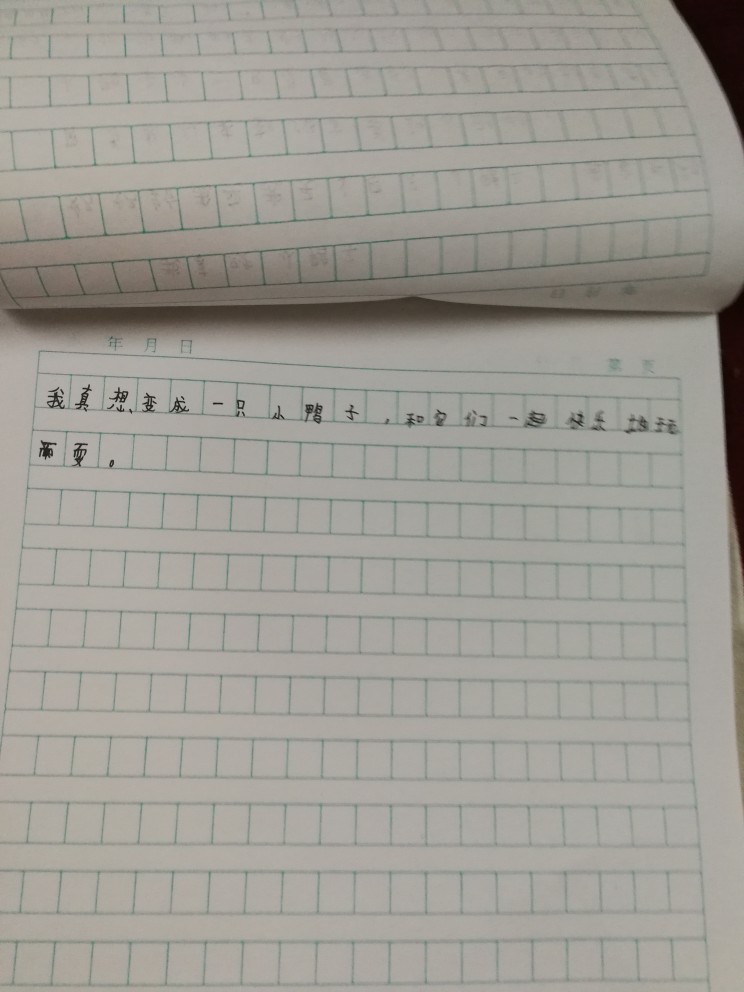 年 月 日
第 页
我真想变成一只小鸭子,和它们一起快乐地玩
而耍。